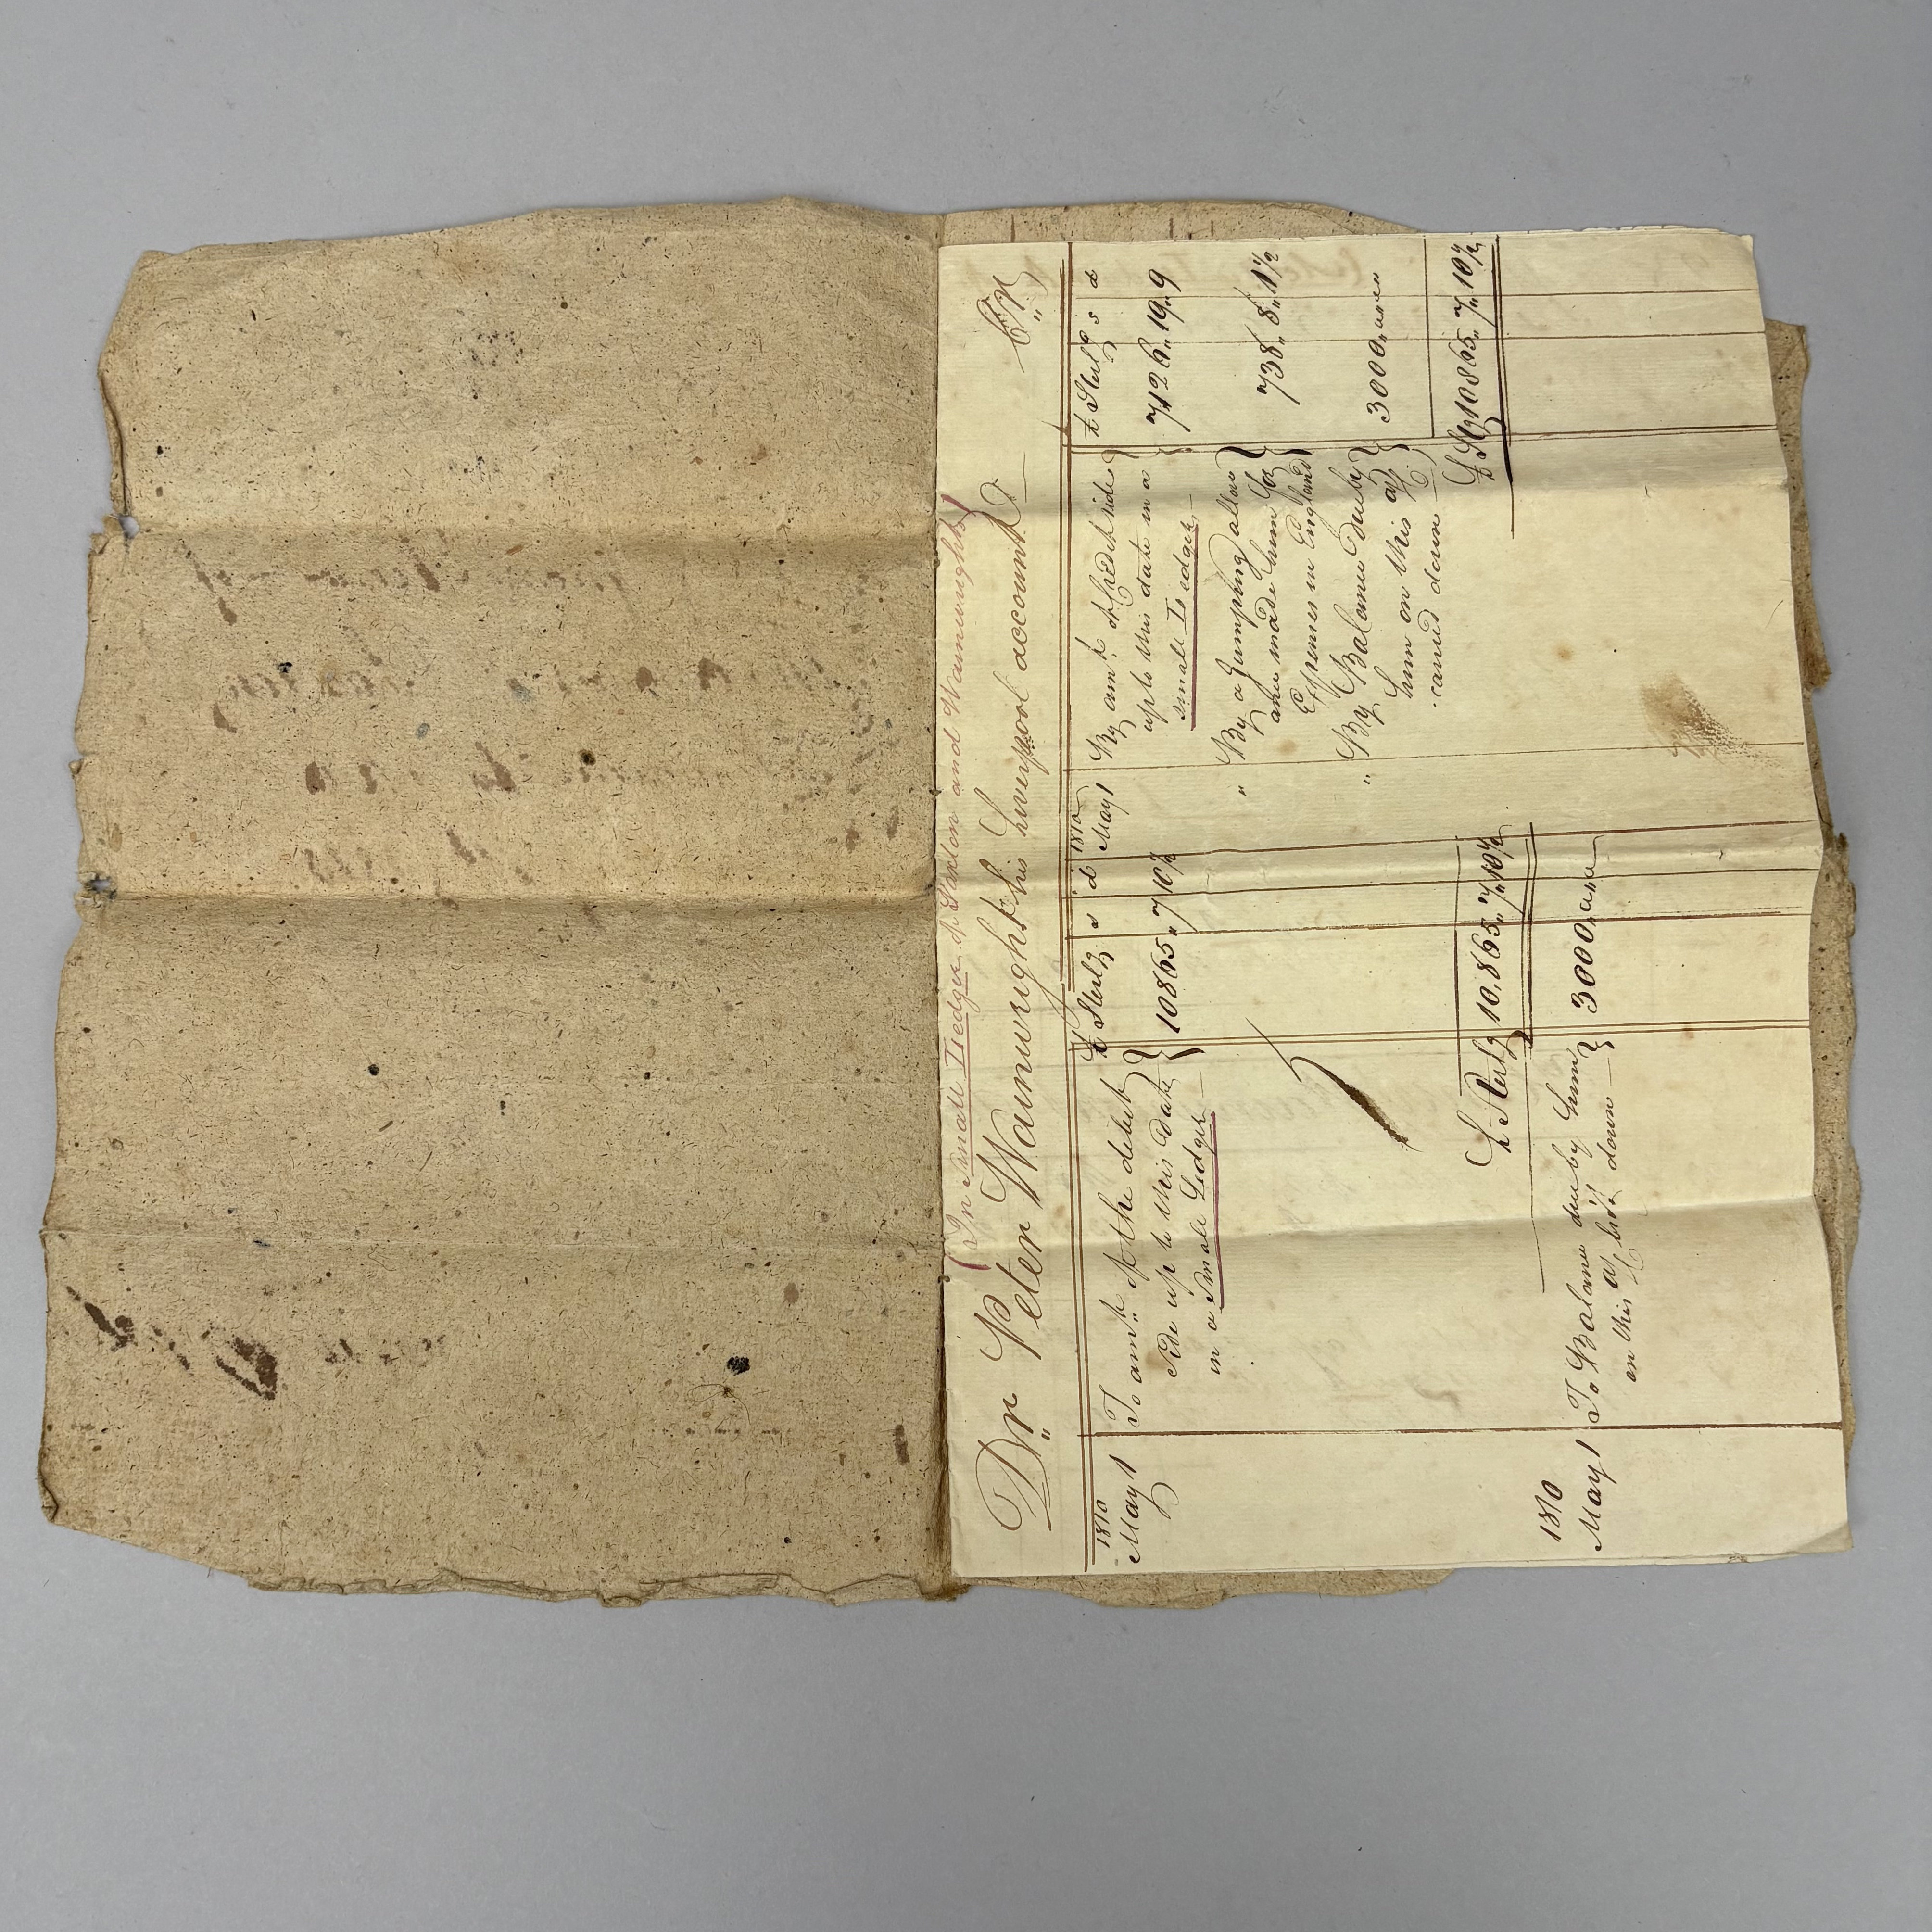 (In Small Ledger of Saxton and Wainwright)
Dr Peter Wainwright his Liverpool account Cr
1810 £ Sterlg s d
May 1 To amt. of the debit 10865 " 7 10½
side up to this date
in a Small Ledger
£ Sterlg 10,865 " 7 " 10½
1810
May 1 To Balance due by him 3000
on this a/c brot. down
1810 £ Sterlg s d
May 1 By amt. of Credit side 7126 " 19 " 9
up to this date in a
small Ledger
" By a Lumping allow 738 " 8 " 1½
ance made him for
Expenses in England
" By Balance due by 3000
him on this a/c
carried down
£ Stg 10865 " 7 " 10½